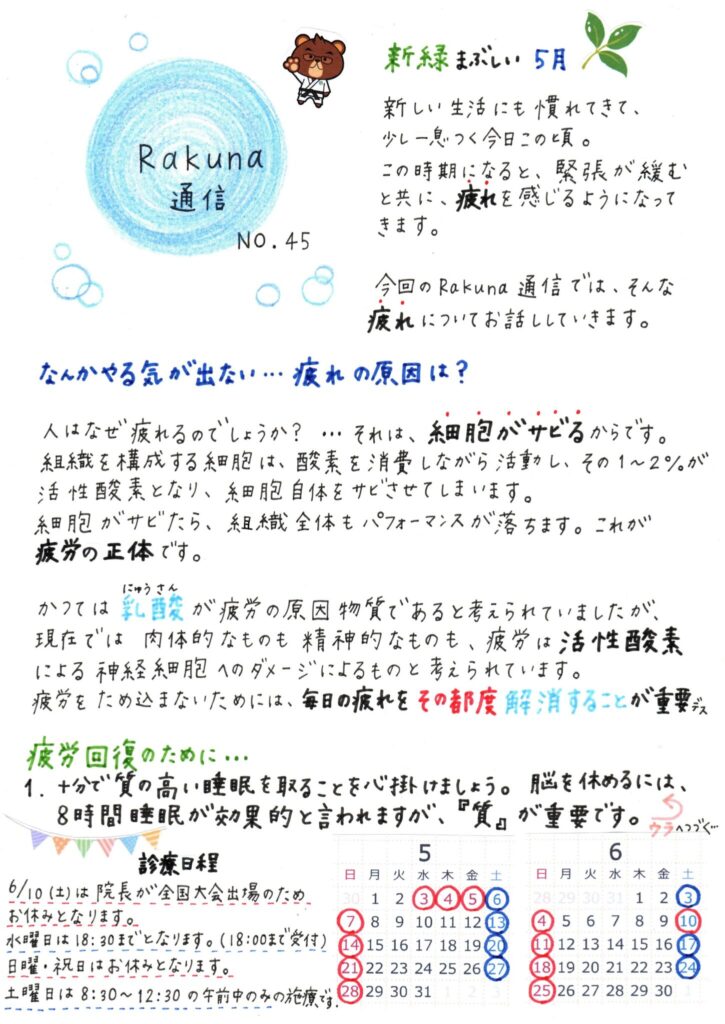 Rakuna
通信
NO.45
新緑まぶしい 5月
新しい生活にも慣れてきて、
少し一息つく今日この頃。
この時期になると、緊張が緩む
と共に、疲れを感じるようになって
きます。
今回のRakuna通信では、そんな
疲れについてお話ししていきます。
なんかやる気が出ない… 疲れの原因は?
人はなぜ疲れるのでしょうか? … それは、細胞がサビるからです。
組織を構成する細胞は、酸素を消費しながら活動し、その1~2%が
活性酸素となり、細胞自体をサビさせてしまいます。
細胞がサビたら、組織全体もパフォーマンスが落ちます。これが
疲労の正体です。
にゅうさん
かつては乳酸が疲労の原因物質であると考えられていましたが、
現在では肉体的なものも精神的なものも、疲労は活性酸素
による神経細胞へのダメージによるものと考えられています。
疲労をため込まないためには、毎日の疲れをその都度解消することが重要デス
疲労回復のために…
1. 十分で質の高い睡眠を取ることを心掛けましょう。 脳を休めるには、
8時間睡眠が効果的と言われますが、『質』が重要です。
ウラへつづく…
診療日程
6/10(土)は院長が全国大会出場のため
お休みとなります。
水曜日は18:30までとなります。(18:00まで受付)
日曜・祝日はお休みとなります。
土曜日は8:30~12:30の午前中のみの施療です.
5
日 月 火 水 木 金 土
30 1 2 3 4 5 6
7 8 9 10 11 12 13
14 15 16 17 18 19 20
21 22 23 24 25 26 27
28 29 30 31 1 2 3
6
日 月 火 水 木 金 土
28 29 30 31 1 2 3
4 5 6 7 8 9 10
11 12 13 14 15 16 17
18 19 20 21 22 23 24
25 26 27 28 29 30 1